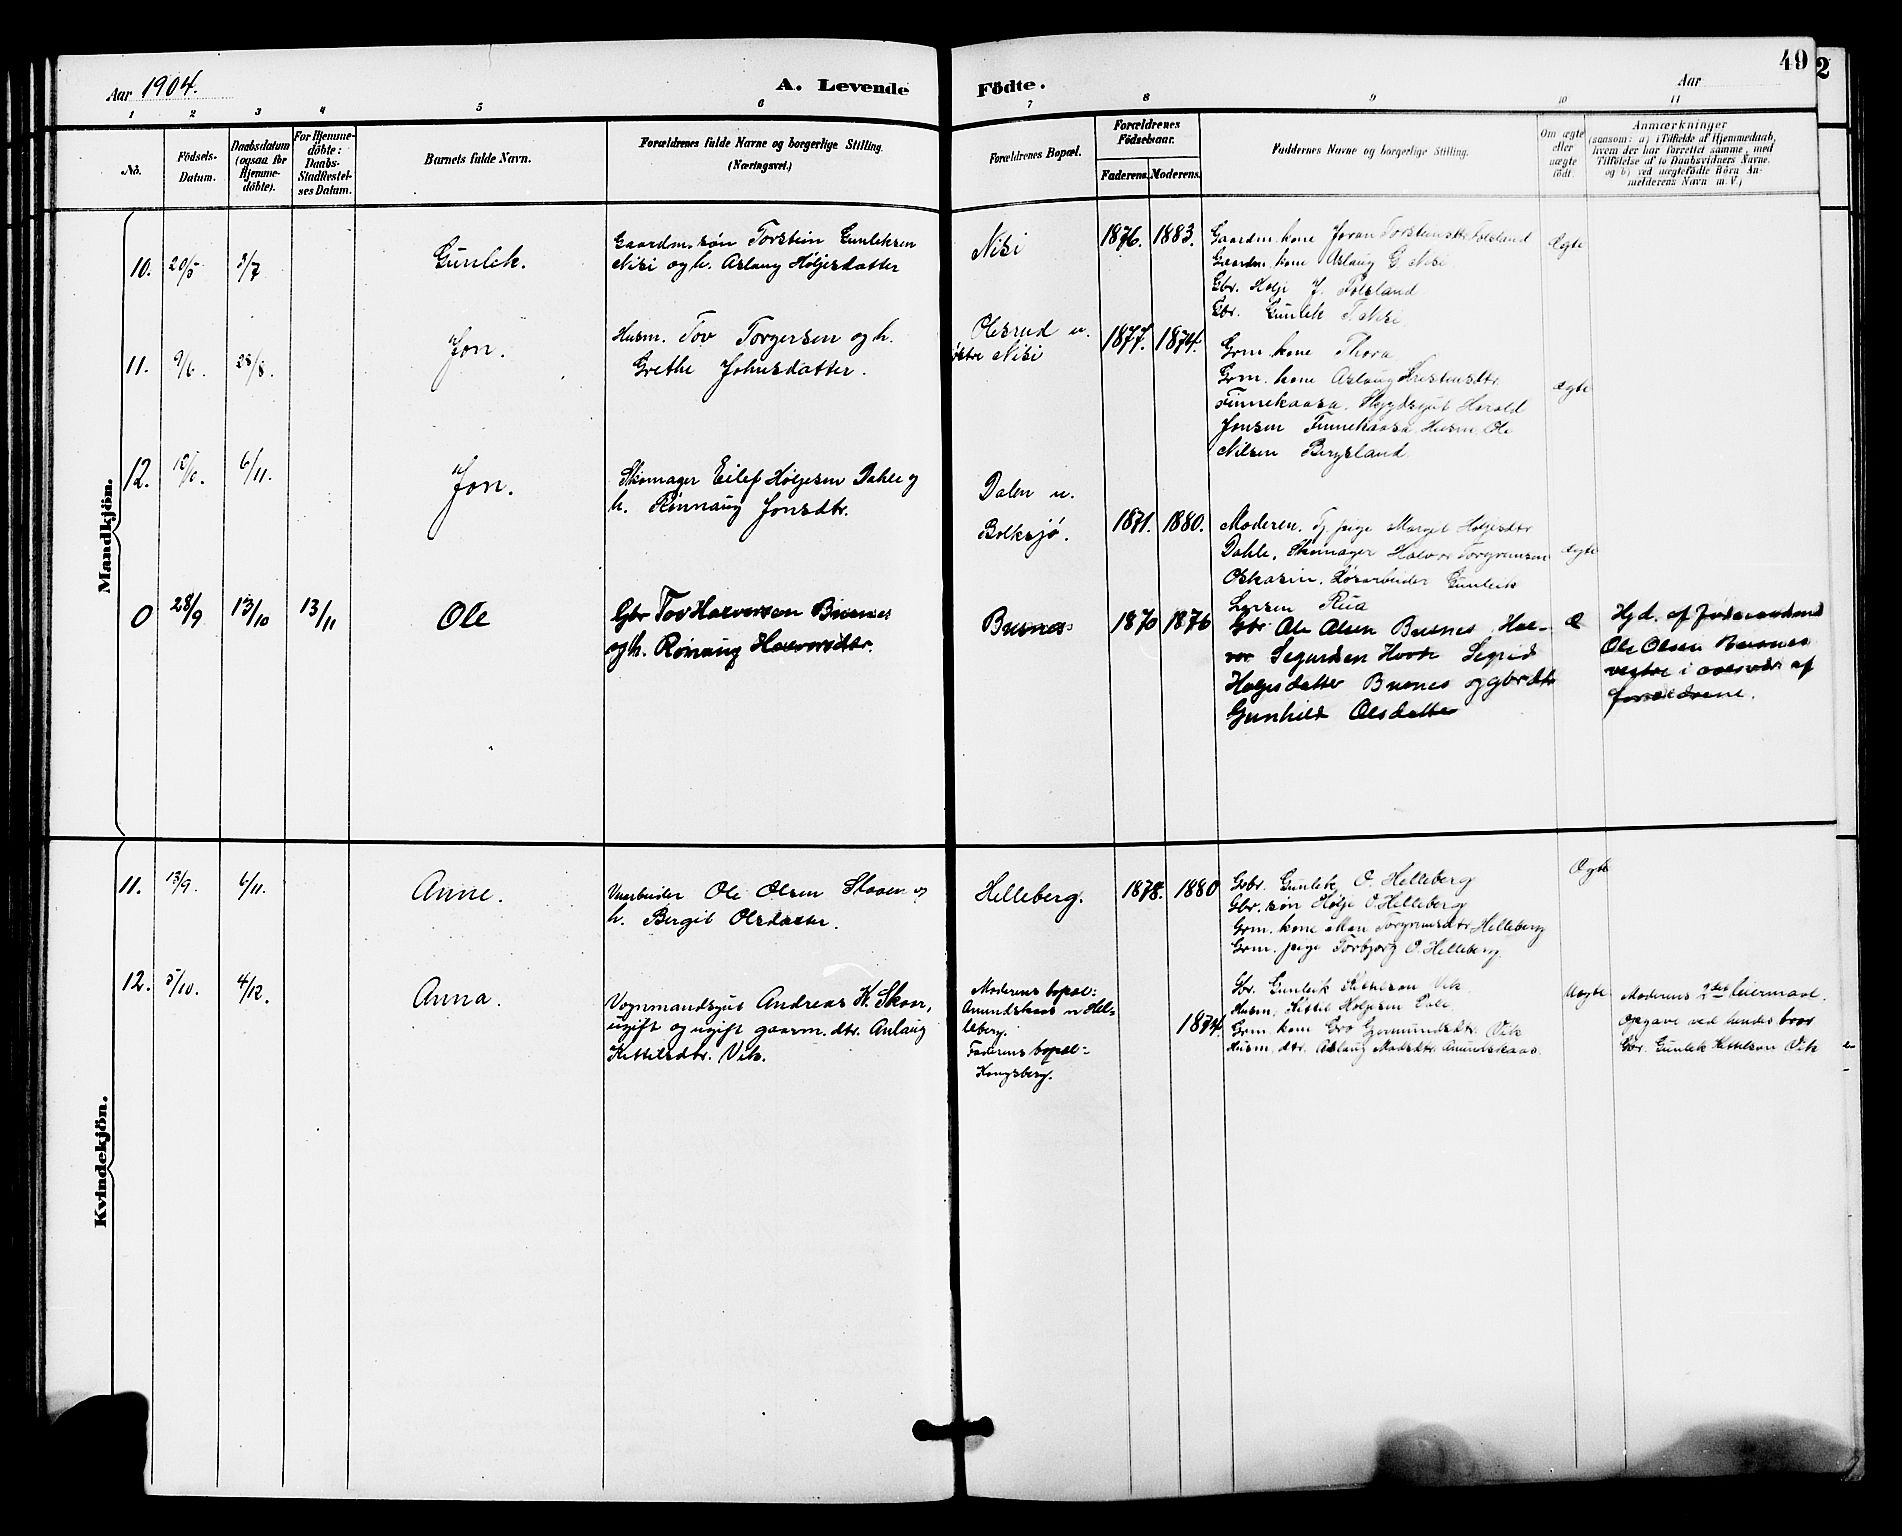 49
2
Aar 1904.
A. Levende Födte.
Aar
1 2 3 4 5 6 7 8 9 10 11
No.
Födsels-
Datum.
Daabsdatum
(ogsaa for
Hjemme-
döbte).
For Hjemme-
döbte:
Daabs-
Stadfæstel-
ses Datum.
Barnets fulde Navn.
Forældrenes fulde Navne og borgerlige Stilling.
(Næringsvei.)
Forældrenes Bopæl.
Forældrenes
Födselsaar.
Faderens. Moderens.
Faddernes Navne og borgerlige Stilling.
Om ægte
eller
uægte
födt.
Anmærkninger
(saasom: a) i Tilfælde af Hjemmedaab,
hvem der har forrettet samme, med
Tilföielse af to Daabsvidners Navne,
og b) ved uægtefödte Börn An-
melderens Navn m. V.)
Mandkjön.
10. 20/5 3/7
Gunlek.
Gaardm. søn Torstein Gunleksen
Nisi og h. Aslaug Høljesdatter
Nisi
1876. 1883.
Gaardm. kone Joran Torsteinsdtr Folsland
Gaardm. kone Aslaug G. Nisi
Gbr. Holje J. Folsland
Gbr. Gunlek
Ægte
11. 9/6. 28/8.
Jon.
Husm. Tov Torgersen og h.
Grethe Johnsdatter.
Olesrud u.
østre Nisi
1877. 1874.
Grm. kone Thora
Grm. kone Aslaug
Finnekaasa. Harald
Jonsen Finnekaasa. Husm. Ole
Nilsen Bergsland.
Ægte
12. 6/11.
Jon.
Skomager Eilef Høljesen Dahle og
h. Rønnaug Jonsdtr.
Dalen u.
Bolksjø.
1871. 1880.
Moderen. Pige Margit Høljesdtr
Dahle. Skomager Halvor Torgrimsen
Løsarbeider Gunleik
Larsen Rua
Ægte
0 28/9 13/10 13/11
Ole
Gbr Tov Halvorsen Busnes
og h. Rönaug Halvorsdtr.
Busnes
1870 1876
Gbr Ole Olsen Busnes, Hal-
vor Segurdsen Hovde Sigrid
Holgesdatter Busnes og gbr dtr
Gunhild Olsdatter
Æ
Hjd. af föderaadsmd
Ole Olsen Busnes
vestre i overvær af
forældrene.
Kvindekjön.
11. 13/9. 6/11.
Anne.
Ole Olsen og
h. Bergit Olsdatter.
Helleberg.
1878. 1880
Gbr. Gunlek O. Helleberg
Gbr. søn Hølje O. Helleberg
Grm. kone Mari Torgrimsdtr Helleberg
Grm. pige Torbjørg O. Helleberg.
Ægte
12. 5/10. 4/12.
Anna.
Vognmandsgut Andreas K. Skoen,
ugift og ugift gaarm. dtr. Aslaug
Kittilsdtr. Vik.
Moderens bopæl:
Amundskaas u Hel-
leberg.
Faderens bopæl-
Kongsberg.
1874.
Gbr. Gunleik Kittilson Vik
Husm. Kittil Høljesen
Grm. kone Gro Germundsdtr. Vik
Husm. dtr. Aslaug Madsdtr. Amundskaas.
Uægte
Moderens 2det leiermaal.
Opgave ved hendes bror
Gbr. Gunlek Kittilson Vik